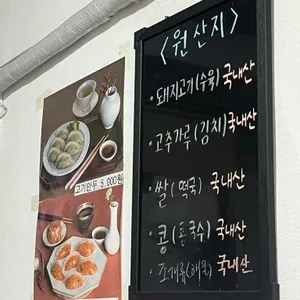 <원산지>
· 돼지고기(수육) 국내산
· 고추가루(김치) 국내산
· 쌀(떡국) 국내산
· 콩(콩국수) 국내산
· 국내산
고기만두 5,000원